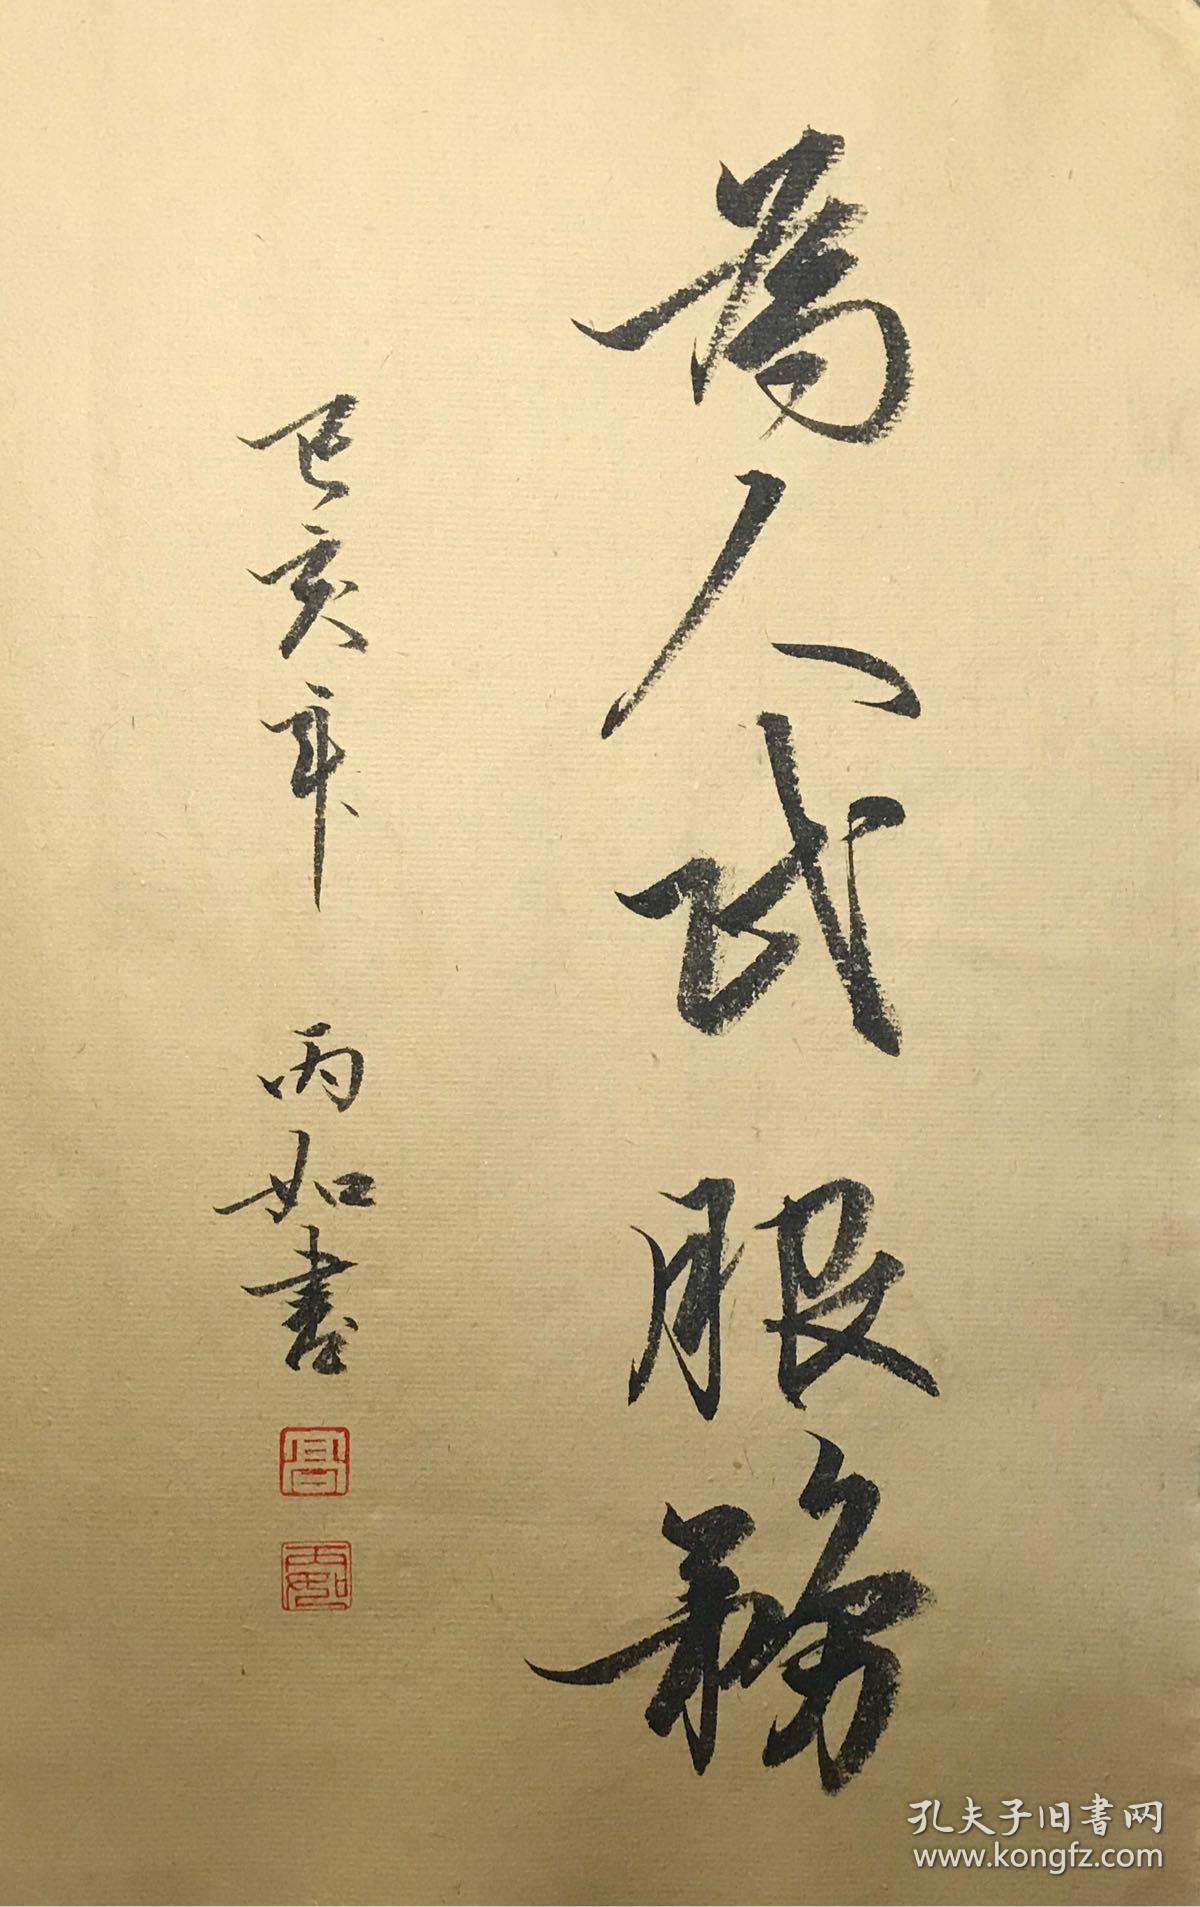 為人民服務
己亥年 丙如書
高
丙如
孔夫子旧書网
www.kongfz.com